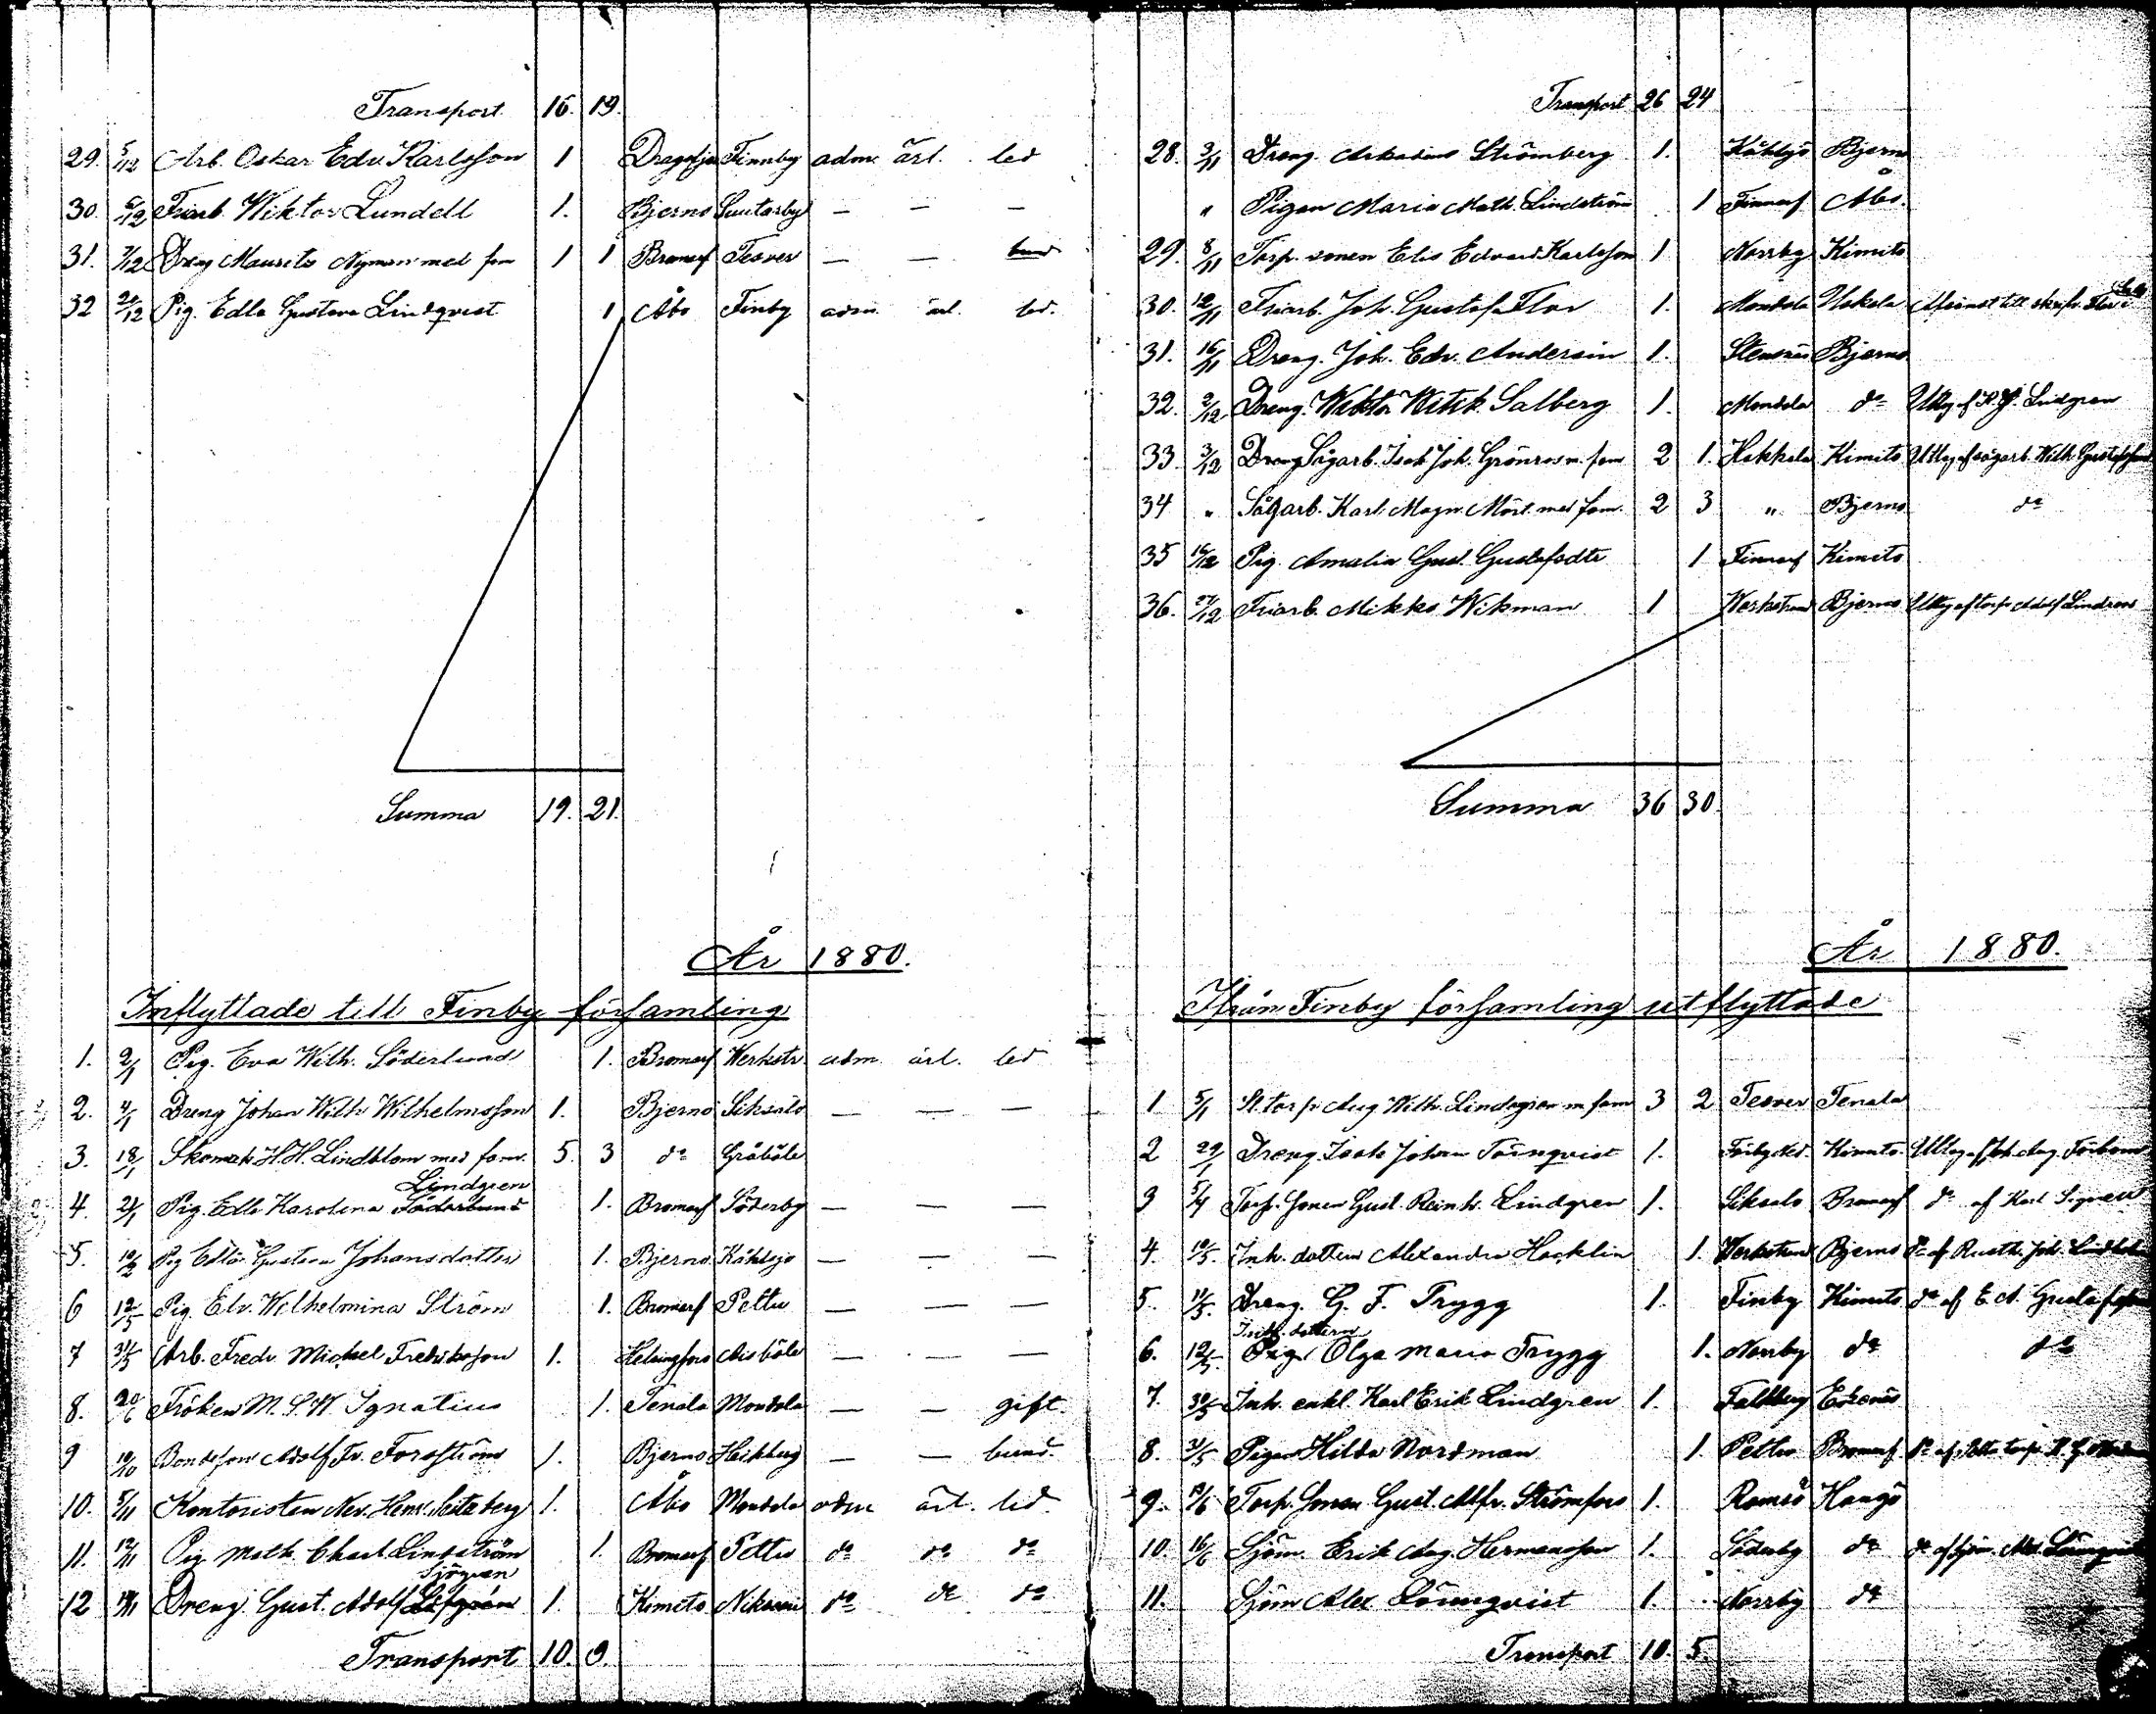 Transport 16. 19.
29. 5/12 Arb. Oskar Edv. Karlsson 1 Dragsfj. Finnby adm. ärl. led
30. 5/12 Friarb. Wiktor Lundell 1. Bjerno Suutarby — — —
31. 7/12 Dreng Maurits Nyman med fam 1 1 Bromarf Tesver — —
32 20/12 Pig. Edla Gustava Lindqvist 1 Åbo Finby adm. ärl. led.
Summa 19. 21.
År 1880.
Inflyttade till Finby församling
1. 2/1 Pig. Eva Wilh. Söderlund 1. Bromarf Werkstr. adm. ärl. led
2. 4/1 Dreng Johan Wilh. Wilhelmsson 1. Bjerno Siksalo — — —
3. 18/1 Skomak. H. H. Lindblom med fam. 5. 3 do Gråböle
Lindgren
4. 21/1 Pig. Edla Karolina Söderlund 1. Bromarf Söderby — — —
5. 10/2 Pig Edla Gustava Johansdotter 1. Bjerno Kåhlojo — — —
6 12/5 Pig. Elv. Wilhelmina Ström 1. Bromarf Pettu — — —
7 31/5 Arb. Fredr. Mickel Fredriksson 1. Helsingfors Aisböle — — —
8. 20/6 Fröken M. S. W. Ignatius 1. Tenala Mondola — — gift.
9 10/10 Bondeson Adolf Fr. Forsström 1. Bjerno — — bund.
10. 5/11 Kontoristen Henr. 1. Åbo Mondola adm ärl. led
11. 12/11 Pig Math. Charl Lindström 1. Bromarf Pettu do do do
Sjögren
12 Dreng Gust. Adolf Löfgrén 1. Kimito do do do
Transport 10. 9.
Transport 26 24
28. 3/11 Dreng. Arkadius Strömberg 1. Kåhlojo Bjerno
" Pigan Maria Math. Lindström 1 Finnarf Åbo.
29. 8/11 Torp. sonen Elis Edvard Karlsson 1 Norrby Kimito
30. 12/11 Friarb. Joh. Gustaf Flor 1. Mondola Uskela
31. 16/11 Dreng. Joh. Edv. Andersin 1. Stensnäs Bjerno
32. 2/12 Dreng. Wiktor Salberg 1. Mondola do Uttag af Lindgren
33. 3/12 Dreng Sågarb. Isak Joh. Grönroos m. fam 2 1. Hakkala Kimito Uttag af sågarb. Wilh. Gustafsson
34 " Sågarb. Karl Magn. Mört med fam. 2 3 " Bjerno do
35 16/12 Pig. Amalia Gust. Gustafsdtr 1 Finnarf Kimito
36. 27/12 Friarb. Mikko Wikman 1 Werkstrand Bjerno Uttag af torp. Adolf Lindroos
Summa 36 30.
År 1880.
Ifrån Finby församling utflyttade
1 5/1 St. torp. Aug Wilh. Lindegren m fam 3 2 Tesver Tenala
2 29/1 Dreng. Isak Johan Törnqvist 1. Kimito. Uttag af Joh. Aug. Förbom
3 5/4 Torp. sonen Gust. Reinh. Lindgren 1. Siksalo Bromarf do af Karl Sigmen
4. 10/5. Inh. dottern Alexandra Hacklin 1. Werkstrand Bjerno do af Rusth. Joh.
5. 11/5. Dreng. G. F. Trygg 1. Finby Kimito do af E. A. Gustafsson
Inh. dottern
6. 12/5. Pig. Olga Maria Trygg 1. Norrby do do
7. 30/5 Inh. enkl. Karl Erik Lindgren 1. Falkberg Ekenäs
8. 31/5 Pigan Hilda Nordman 1. Pettu Bromarf do af
9. 13/6 Torp. sonen Gust. Alfr. Strömfors 1. Ramsö Hangö
10. 16/6 Sjöm. Erik Aug. Hermansson 1. Söderby do do af sjöm. Alex. Lönnqvist
11. Sjöm Alex Lönnqvist 1. Norrby do
Transport 10. 5.